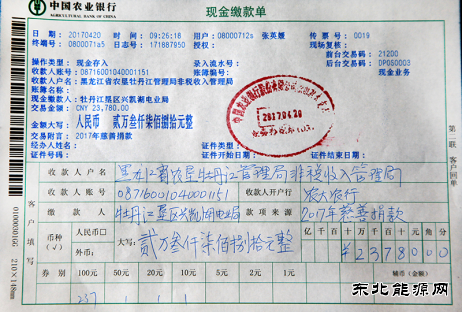 中国农业银行
AGRICULTURAL BANK OF CHINA
现金缴款单
日期：20170420 时间：09:26:18 用户：08000712a 张英媛 传票：0019
终端号：0800071a5 日志号：171887950 授权： 前台交易码：21200
现场复核： 后台交易码：DP050003
操作类型：现金存入 录入流水号： 现金业务
收款人账号：08716001040001151 账簿编号：
收款人户名：黑龙江省农垦牡丹江管理局非税收入管理局
账簿名称：
现金缴款人：牡丹江垦区兴凯湖电业局
交易金额：CNY 23,780.00
金额大写：人民币 贰万叁仟柒佰捌拾元整
交易附言：2017年慈善捐款
经办人姓名： 证件类型： 证件号码：
证件开始日： 证件结束日：
2017.04.20
收款人户名 黑龙江省农垦牡丹江管理局非税收入管理局
收款人账号 08716001040001151 收款人开户行 农大农行
缴款人 牡丹江垦区兴凯湖电业局 款项来源 2017年慈善捐款
币种(√) 人民币□ 外币： 大写：贰万叁仟柒佰捌拾元整 亿 千 百 十 万 千 百 十 元 角 分
¥2378000
券别 100元 50元 20元 10元 5元 2元 1元 辅币(金额)
237 1 1 1
客户填写
第二联
210×148mm
东北能源网